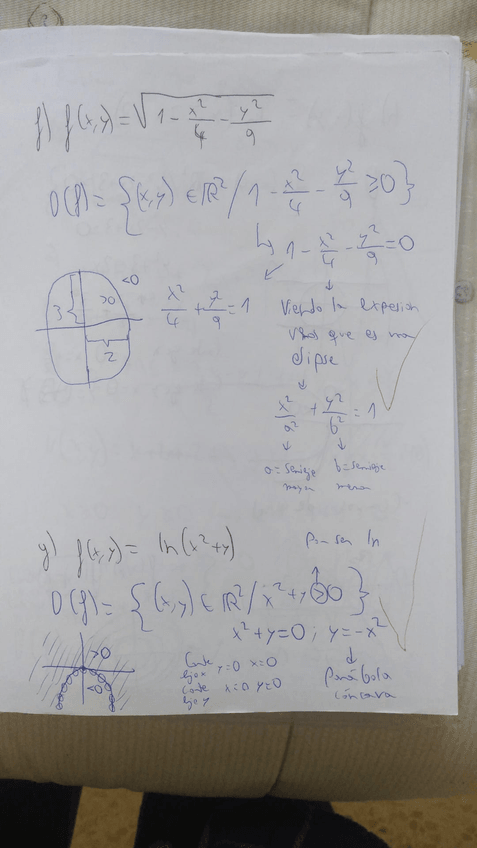 f) f(x,y) = √(1 - x²/4 - y²/9)
D(f) = {(x,y) ∈ ℝ² / 1 - x²/4 - y²/9 ≥ 0}
↳ 1 - x²/4 - y²/9 = 0
<0
3 >0
2
x²/4 + y²/9 = 1
Viendo la expesion
vemos que es una
elipse
x²/a² + y²/b² = 1
a = semieje
mayor
b = semieje
menor
g) f(x,y) = ln(x²+y)
Por ser ln
D(f) = {(x,y) ∈ ℝ² / x²+y > 0}
x²+y=0 ; y=-x²
>0
<0
Corte
eje x y=0 x=0
Corte
eje y x=0 y=0
Parábola
cóncava